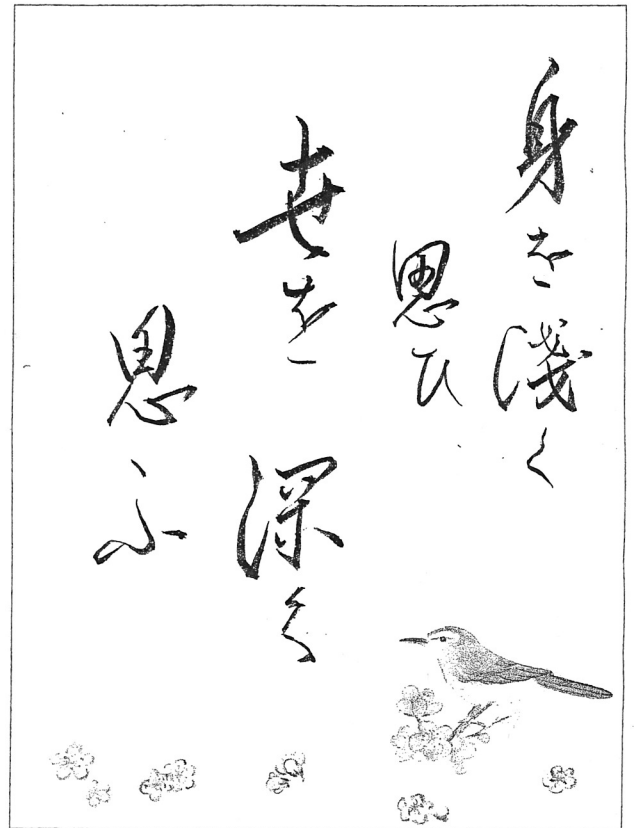 身を淺く
思ひ
世を深く
思ふ